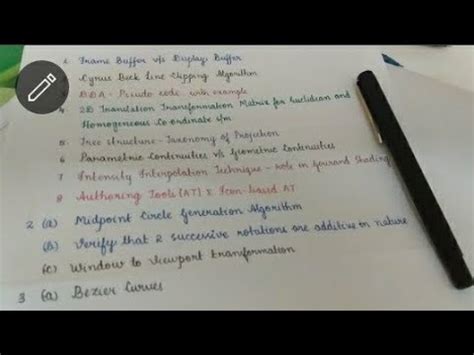 1 Frame Buffer v/s Display Buffer
2 Cyrus Beck Line Clipping Algorithm
3 DDA - Pseudo code with example
4 2D Translation Transformation Matrix for Euclidian and
Homogeneous Co-ordinate s/m
5 Tree structure - Taxonomy of Projection
6 Parametric Continuities v/s Geometric Continuities
7 Intensity Interpolation Technique - Role in Gourand Shading
8 Authoring Tools [AT] & Icon-based AT
2 (a) Midpoint Circle Generation Algorithm
(b) Verify that 2 successive rotations are additive in nature
(c) Window to Viewport transformation
3 (a) Bezier Curves